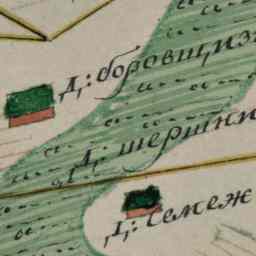 Д: боровщиз
Д: шершни
Д: Семеж